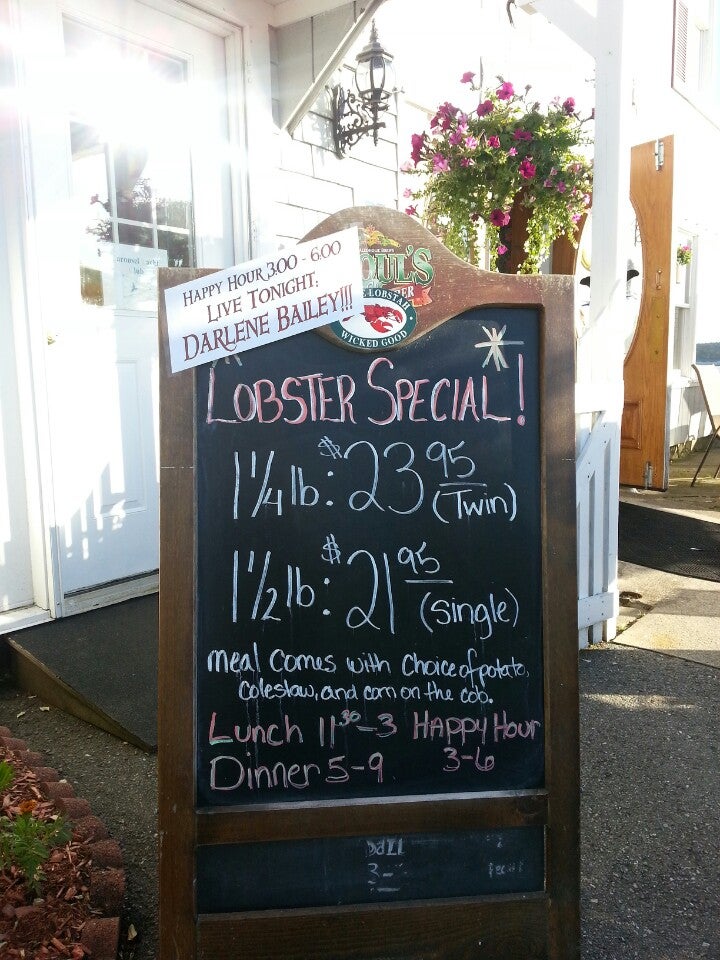 HAPPY HOUR 3:00 - 6:00
LIVE TONIGHT:
DARLENE BAILEY!!!
OUL'S
LOBSTAH
WICKED GOOD
LOBSTER SPECIAL!
1 1/4 lb: $23 95 (Twin)
1 1/2 lb: $21 95 (single)
meal comes with choice of potato,
coleslaw, and corn on the cob.
Lunch 11 30 - 3 HAPPY HOUR
Dinner 5-9 3-6